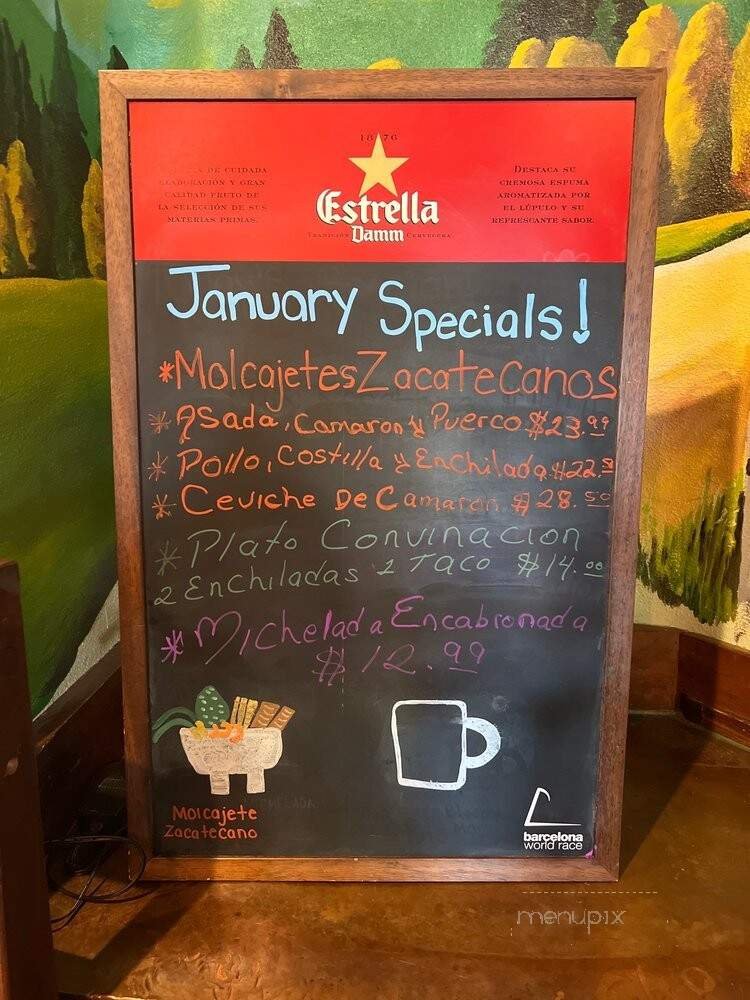 1876
DE CUIDADA
ELABORACIÓN Y GRAN
CALIDAD FRUTO DE
LA SELECCIÓN DE SUS
MATERIAS PRIMAS.
Estrella
Damm
TRADICIÓN CERVECERA
DESTACA SU
CREMOSA ESPUMA
AROMATIZADA POR
EL LÚPULO Y SU
REFRESCANTE SABOR.
January Specials!
*Molcajetes Zacatecanos
* Asada, Camaron y Puerco $23.99
* Pollo, Costilla y Enchilada $22.
* Ceviche De Camaron $28.50
* Plato Convinacion
2 Enchiladas 1 Taco $14.00
* Michelada Encabronada
$12.99
Molcajete
Zacatecano
barcelona
world race
menupix